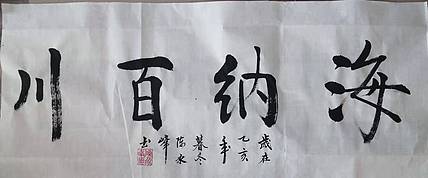 海纳百川
歲在
乙亥
年
暮冬
陈永
峰
书